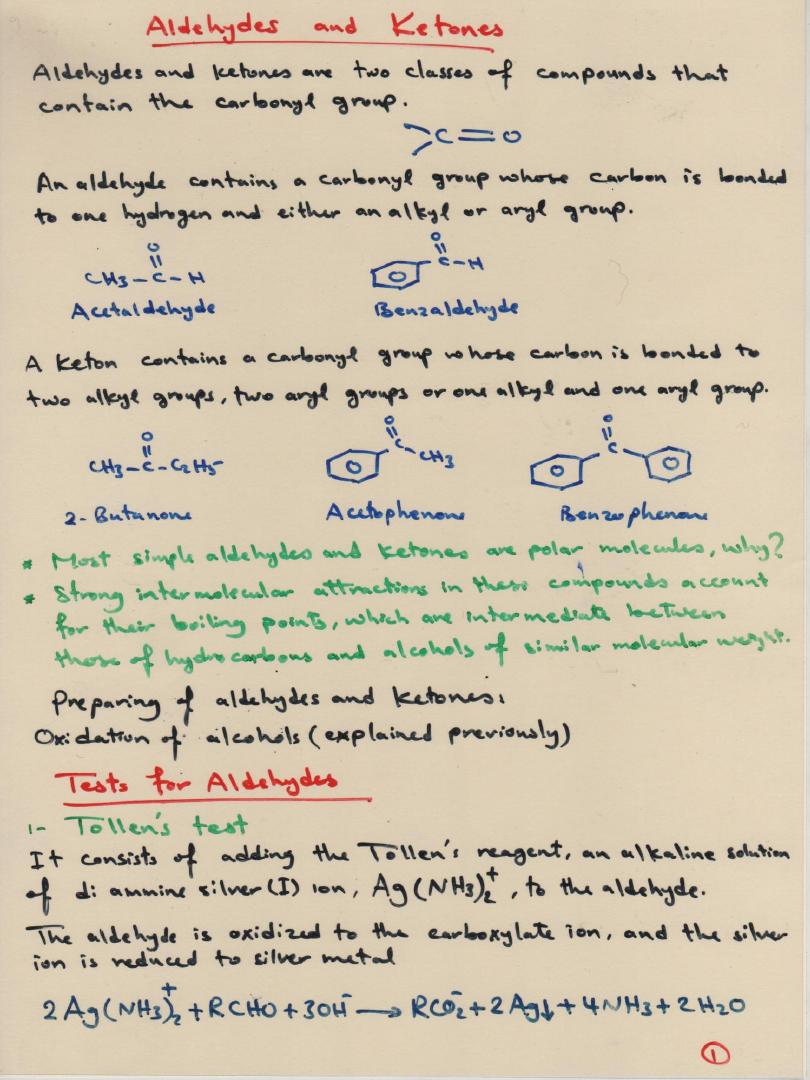 Aldehydes and Ketones
Aldehydes and ketones are two classes of compounds that
contain the carbonyl group.
C=O
An aldehyde contains a carbonyl group whose carbon is bonded
to one hydrogen and either an alkyl or aryl group.
O
CH3-C-H
Acetaldehyde
O
C-H
Benzaldehyde
A Keton contains a carbonyl group whose carbon is bonded to
two alkyl groups, two aryl groups or one alkyl and one aryl group.
O
CH3-C-C2H5
2-Butanone
O
C-CH3
Acetophenone
O
C
Benzophenone
* Most simple aldehydes and ketones are polar molecules, why?
* Strong intermolecular attractions in these compounds account
for their boiling points, which are intermediate between
those of hydrocarbons and alcohols of similar molecular weight.
Preparing of aldehydes and ketones:
Oxidation of alcohols (explained previously)
Tests for Aldehydes
1- Tollen's test
It consists of adding the Tollen's reagent, an alkaline solution
of di ammine silver (I) ion, Ag(NH3)2+, to the aldehyde.
The aldehyde is oxidized to the carboxylate ion, and the silver
ion is reduced to silver metal
2Ag(NH3)2+ + RCHO + 3OH- → RCO2- + 2Ag↓ + 4NH3 + 2H2O
1